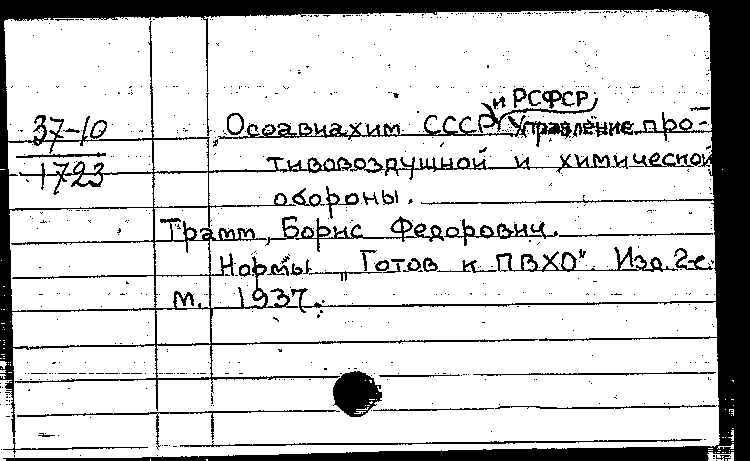 и РСФСР
37-10
1723
Осоавиахим СССР Управление про-
тивовоздушной и химической
обороны.
Трамм, Борис Федорович.
Нормы „Готов к ПВХО". Изд. 2-е.
М. 1937.